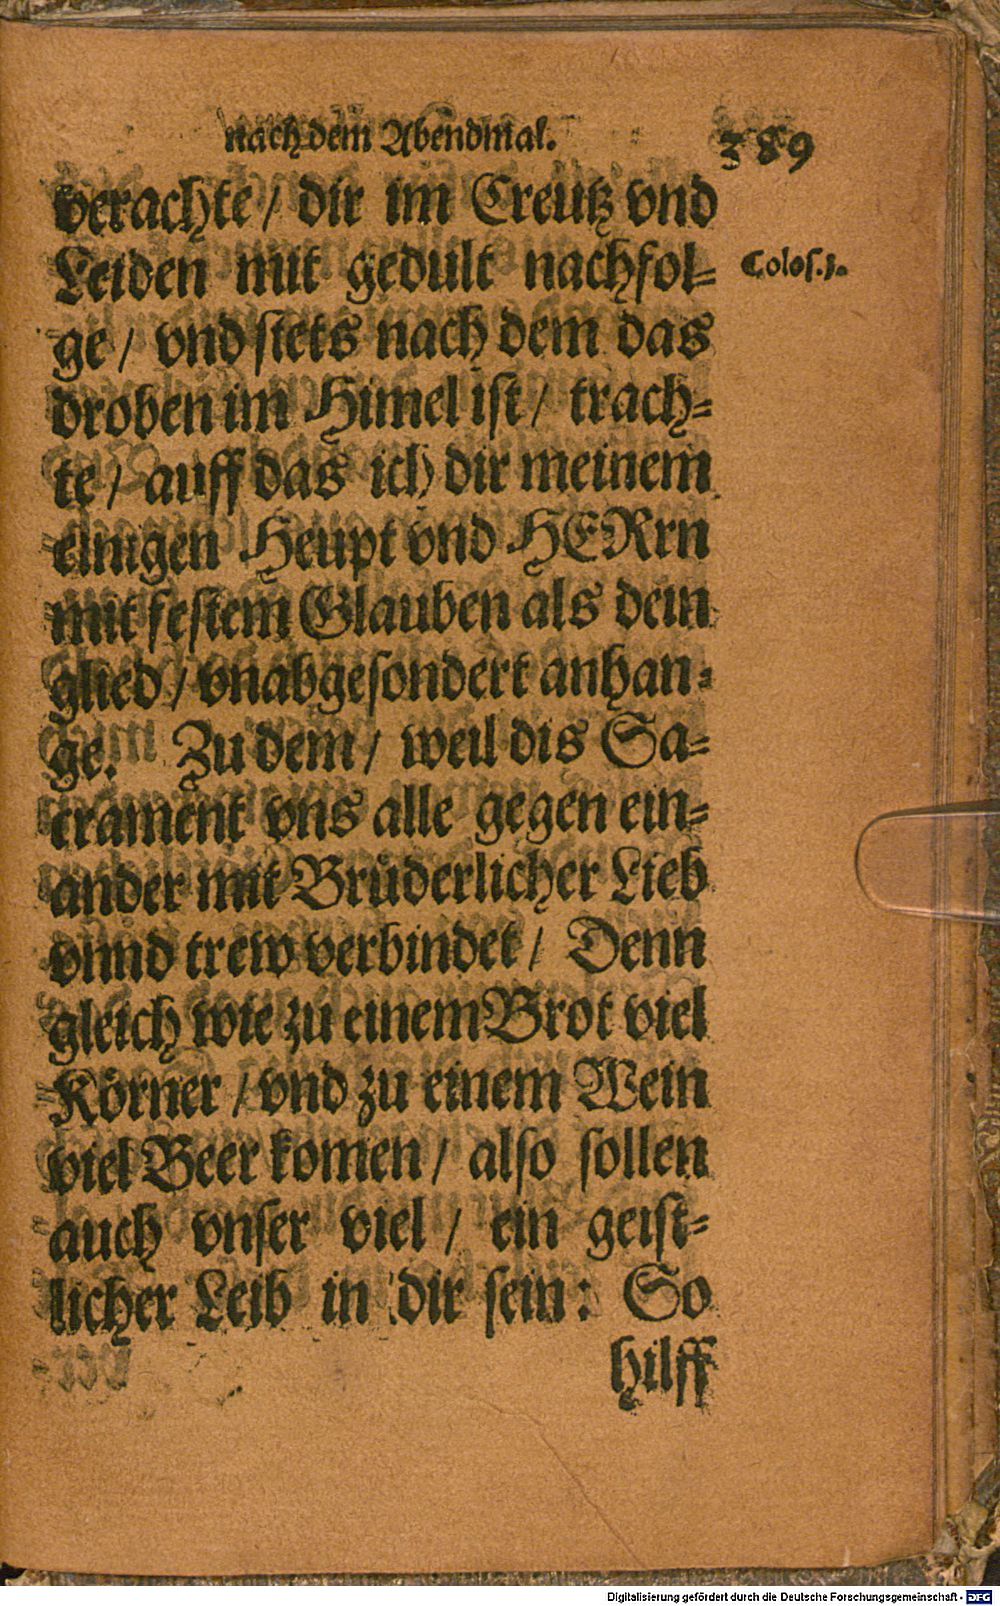 nach dem Abendmal. 389
verachte / dir im Creutz vnd
Leiden mit gedult nachfol-
Colos.3.
ge / vnd stets nach dem das
droben im Himel ist / trach-
te / auff das ich dir meinem
einigen Heupt vnd HERrn
mit festem Glauben als dein
glied / vnabgesondert anhan-
ge. Zu dem / weil dis Sa-
crament vns alle gegen ein-
ander mit Brüderlicher Lieb
vnnd trew verbindet / Denn
gleich wie zu einem Brot viel
Körner / vnd zu einem Wein
viel Beer komen / also sollen
auch vnser viel / ein geist-
licher Leib in dir sein: So
hilff
Digitalisierung gefördert durch die Deutsche Forschungsgemeinschaft - DFG